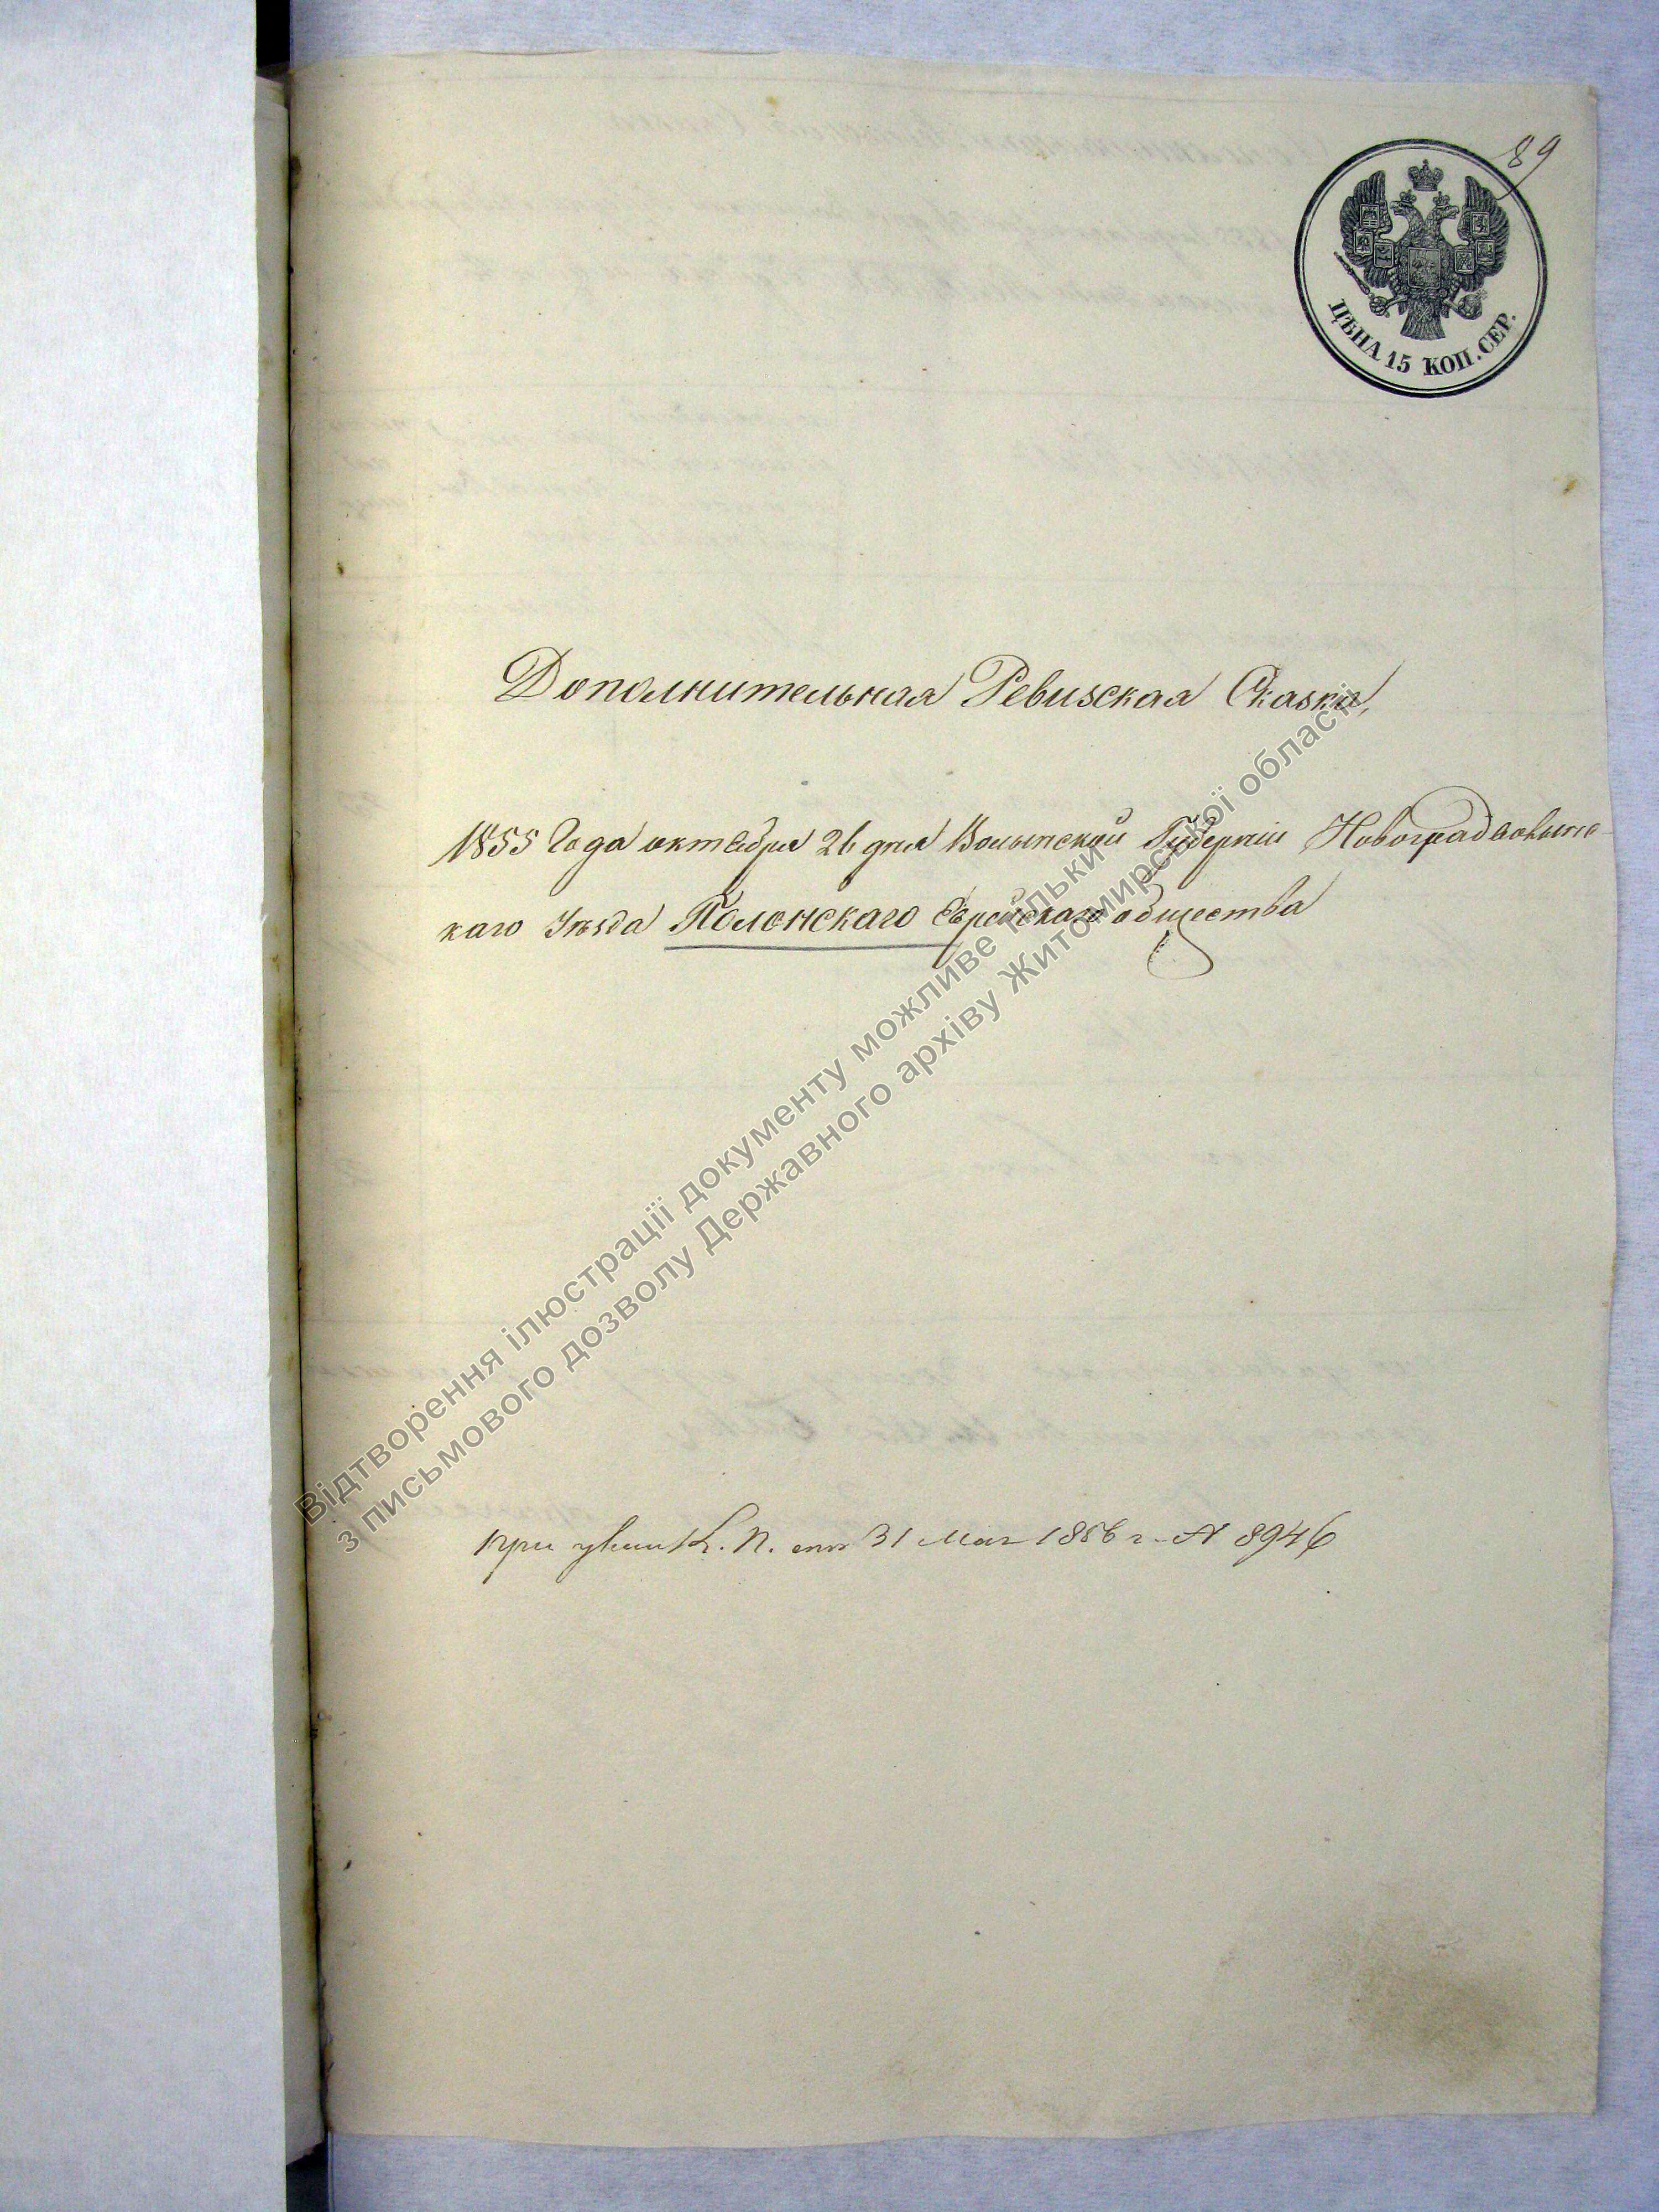 89
ЦѢНА 15 КОП. СЕР.
Дополнительная Ревизская Сказка,
1855 Года октября 26 дня Волынской Губерніи Новоградволынс-
каго Уѣзда Полонскаго Еврейскаго общества
при К. П. отъ 31 Мая 1856 г. № 8946
Відтворення ілюстрації документу можливе тільки
з письмового дозволу Державного архіву Житомирської області